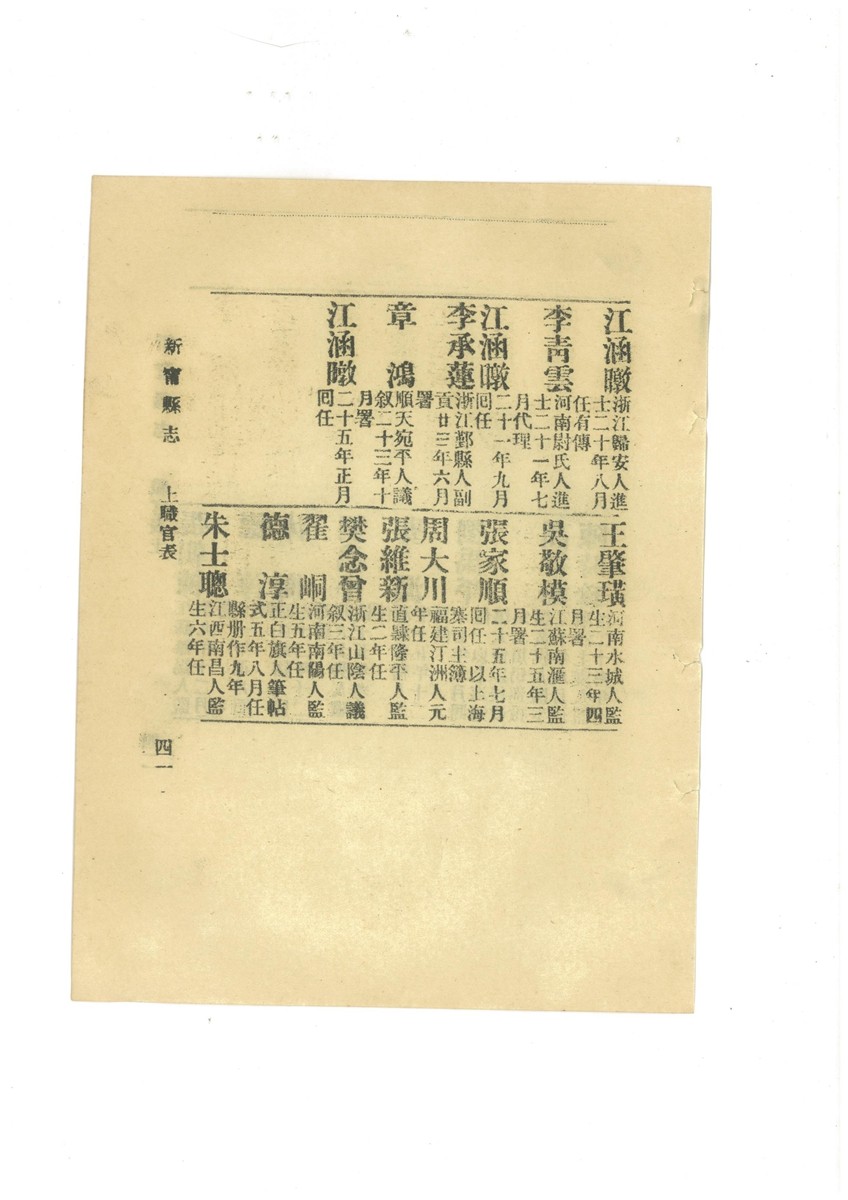 江涵暾
浙江歸安人進
士二十年八月
任有傳
李青雲
河南尉氏人進
士二十一年七
月代理
江涵暾
二十一年九月
囘任
李承蓮
浙江鄞縣人副
貢廿三年六月
署
章鴻
順天宛平人議
叙二十三年十
月署
江涵暾
二十五年正月
囘任
王肇璜
河南水城人監
生二十三年四
月署
吳敬模
江蘇南滙人監
生二十五年三
月署
張家順
二十五年七月
囘任 以上海
寨司主簿
周大川
福建汀洲人元
年任
張維新
直隸隆平人監
生二年任
樊念曾
浙江山陰人議
叙三年任
翟峒
河南南陽人監
生五年任
德淳
正白旗人筆帖
式五年八月任
縣册作九年
朱士聰
江西南昌人監
生六年任
新甯縣志 上職官表 四一